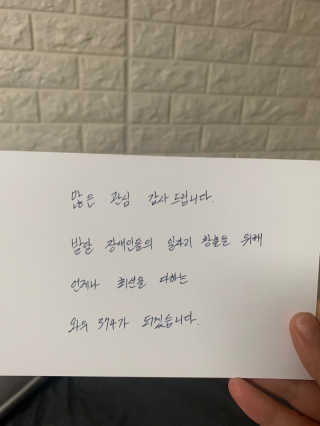 많은 관심 감사드립니다.
발달 장애인들의 일자리 창출을 위해
언제나 최선을 다하는
와우 374가 되겠습니다.